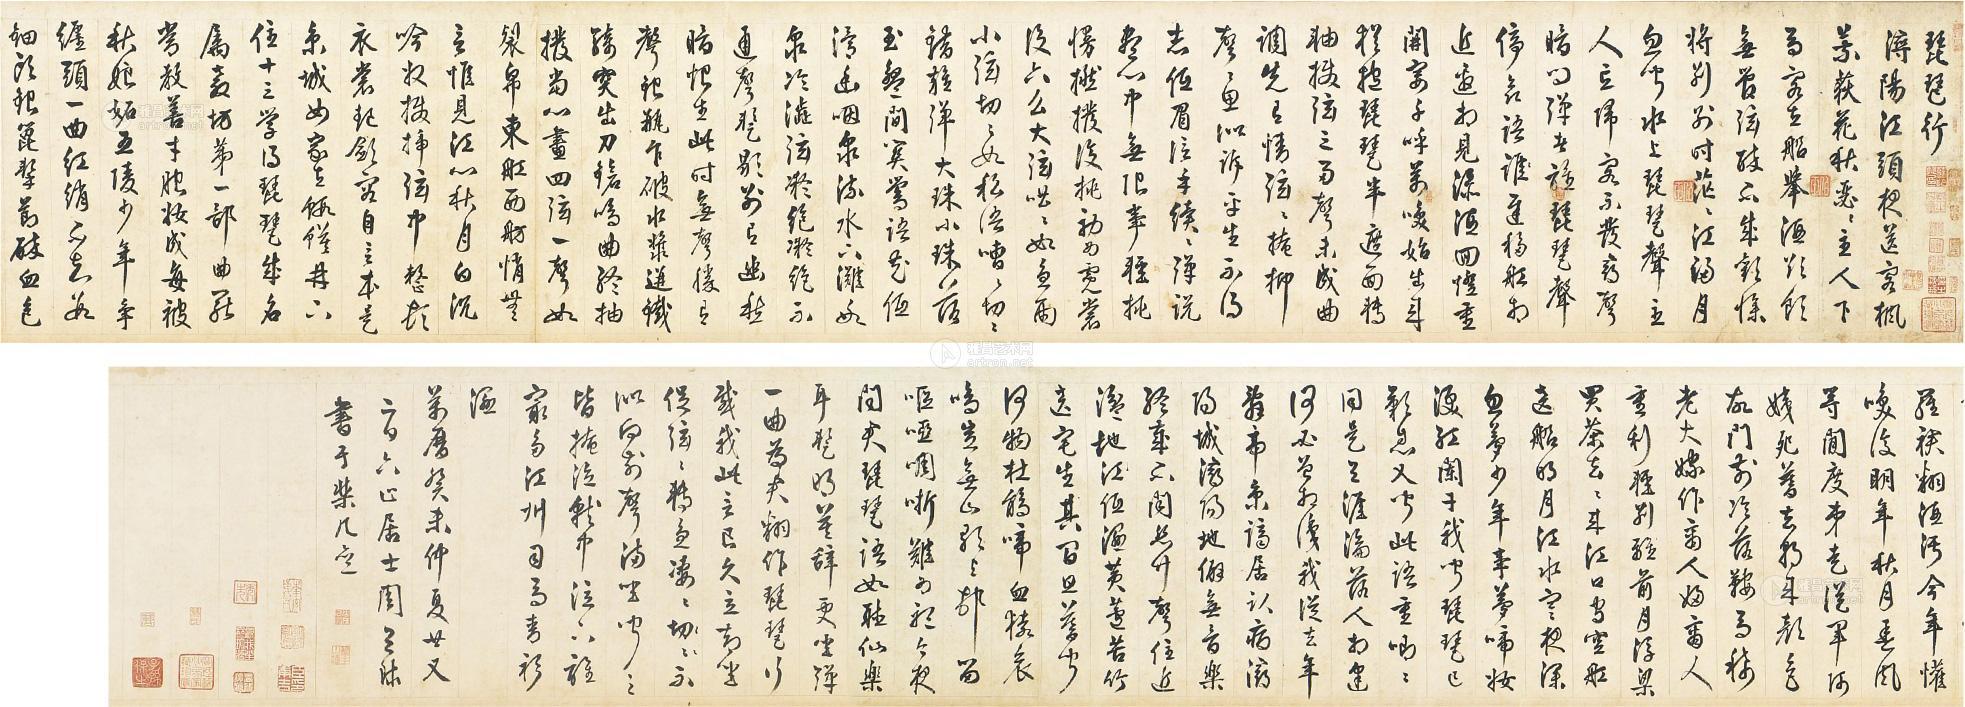 琵琶行
潯陽江頭夜送客楓
葉荻花秋瑟瑟主人下
馬客在船舉酒欲飲
無管弦醉不成歡慘
將別別時茫茫江浸月
忽聞水上琵琶聲主
人忘歸客不發尋聲
暗問彈者誰琵琶聲
停欲語遲移船相
近邀相見添酒回燈重
開宴千呼萬喚始出來
猶抱琵琶半遮面轉
軸撥弦三兩聲未成曲
調先有情弦弦掩抑
聲聲思似訴平生不得
志低眉信手續續彈說
盡心中無限事輕挑
慢撚撥復挑初為霓裳
後六么大弦嘈嘈如急雨
小弦切切如私語嘈嘈切切
錯雜彈大珠小珠落
玉盤間關鶯語花底
滑幽咽泉流水下灘水
泉冷澀弦凝絕凝絕不
通聲暫歇別有幽愁
暗恨生此時無聲勝有
聲銀瓶乍破水漿迸鐵
騎突出刀鎗鳴曲終抽
撥當心畫四弦一聲如
裂帛東船西舫悄無
言惟見江心秋月白沉
吟收撥插弦中整頓
衣裳起斂容自言本是
京城女家在蝦蟆陵下
住十三學得琵琶成名
屬教坊第一部曲罷
常教善才服妝成每被
秋娘妬五陵少年爭
纏頭一曲紅綃不知數
鈿頭銀篦擊節碎血色
羅裙翻酒污今年懽
笑復明年秋月春風
等閒度弟走從軍阿
姨死暮去朝來顏色
故門前冷落鞍馬稀
老大嫁作商人婦商人
重利輕別離前月浮梁
買茶去去來江口守空船
遶船明月江水寒夜深
忽夢少年事夢啼妝
淚紅闌干我聞琵琶已
歎息又聞此語重唧唧
同是天涯淪落人相逢
何必曾相識我從去年
辭帝京謫居臥病潯
陽城潯陽地僻無音樂
終歲不聞絲竹聲住近
湓地江低濕黃蘆苦竹
遶宅生其間旦暮聞
何物杜鵑啼血猿哀
鳴豈無山歌與村笛
嘔啞啁哳難為聽今夜
聞君琵琶語如聽仙樂
耳暫明莫辭更坐彈
一曲為君翻作琵琶行
感我此言良久立却坐
促弦弦轉急淒淒切切不
似向前聲滿坐聞之
皆掩泣就中泣下誰
最多江州司馬青衫
濕
萬曆癸未仲夏廿又
二日六止居士周天球
書于柴几室